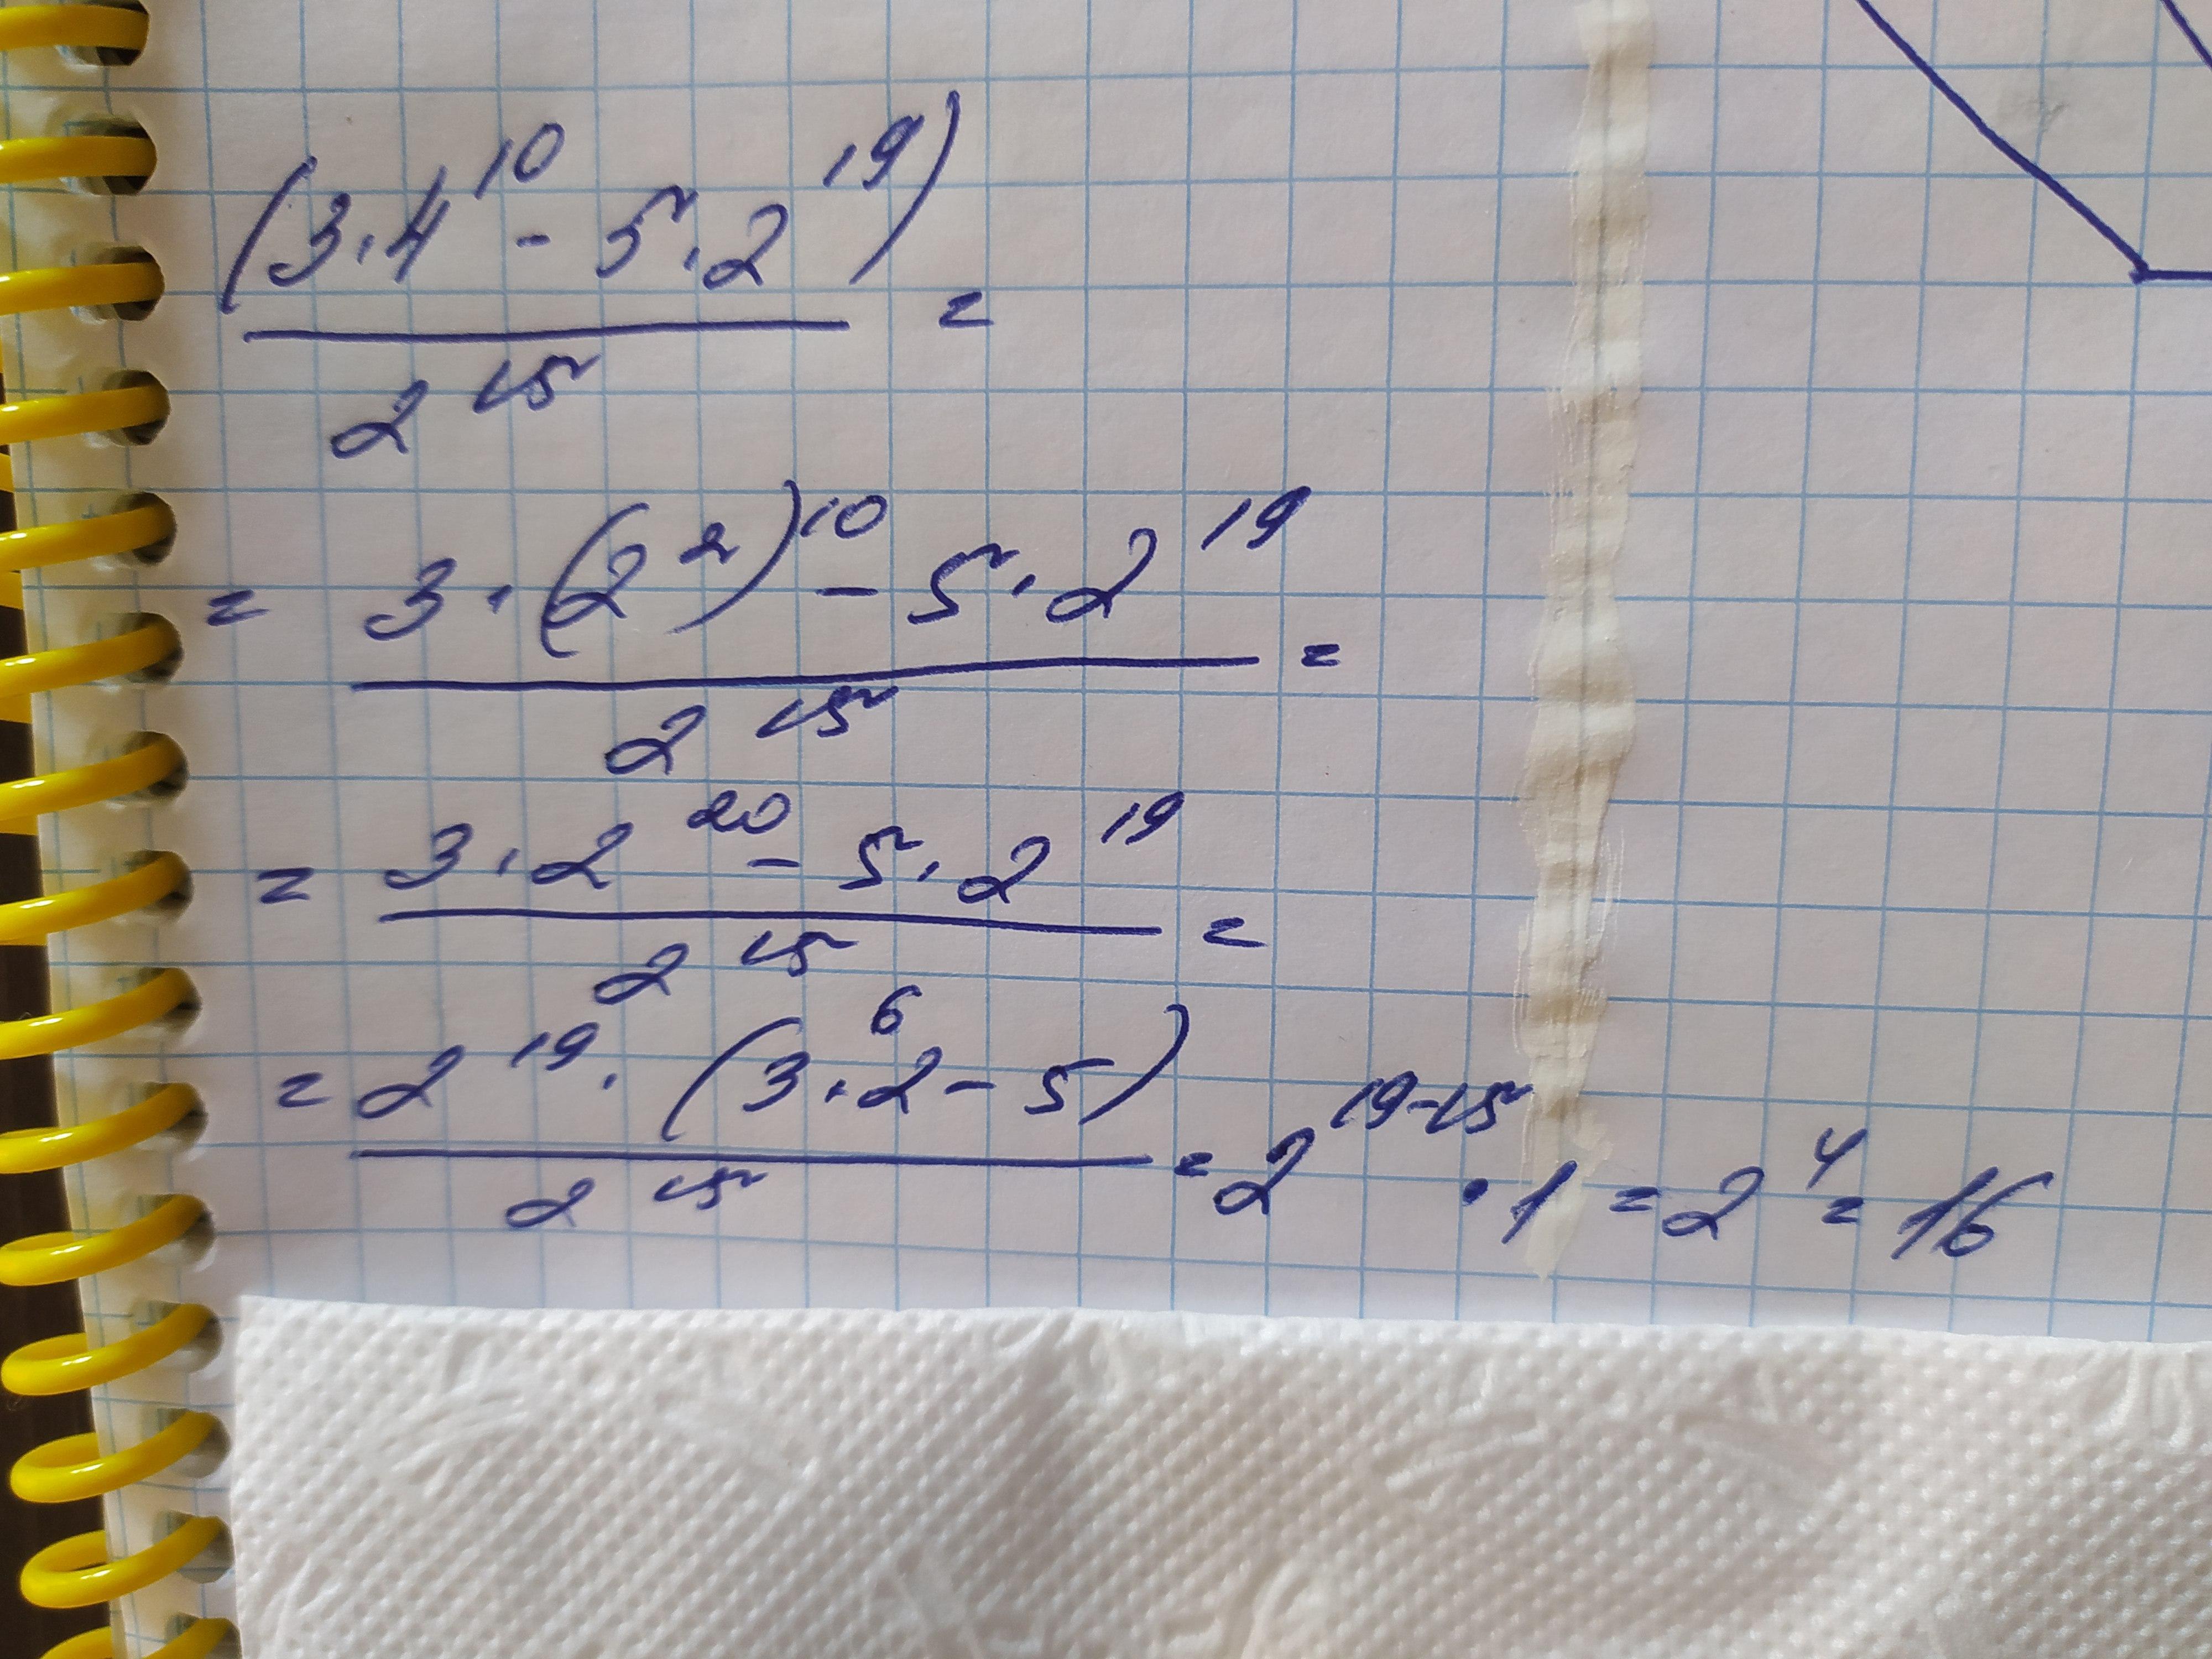 (3·4¹⁰ - 5·2¹⁹)
2¹⁵ =
= 3·(2²)¹⁰ - 5·2¹⁹
2¹⁵ =
= 3·2²⁰ - 5·2¹⁹
2¹⁵ =
6
= 2¹⁹·(3·2 - 5)
2¹⁵ = 2¹⁹⁻¹⁵ · 1 = 2⁴ = 16